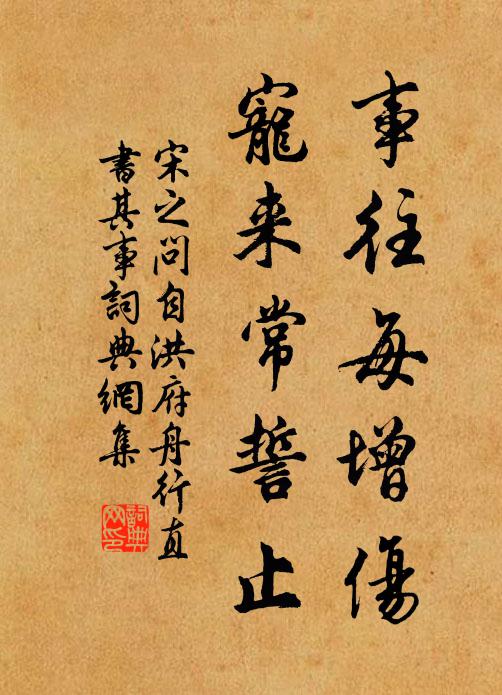 事往每增傷
寵来常誓止
宋之問自洪府舟行直
書其事詞典網集
詞典网印